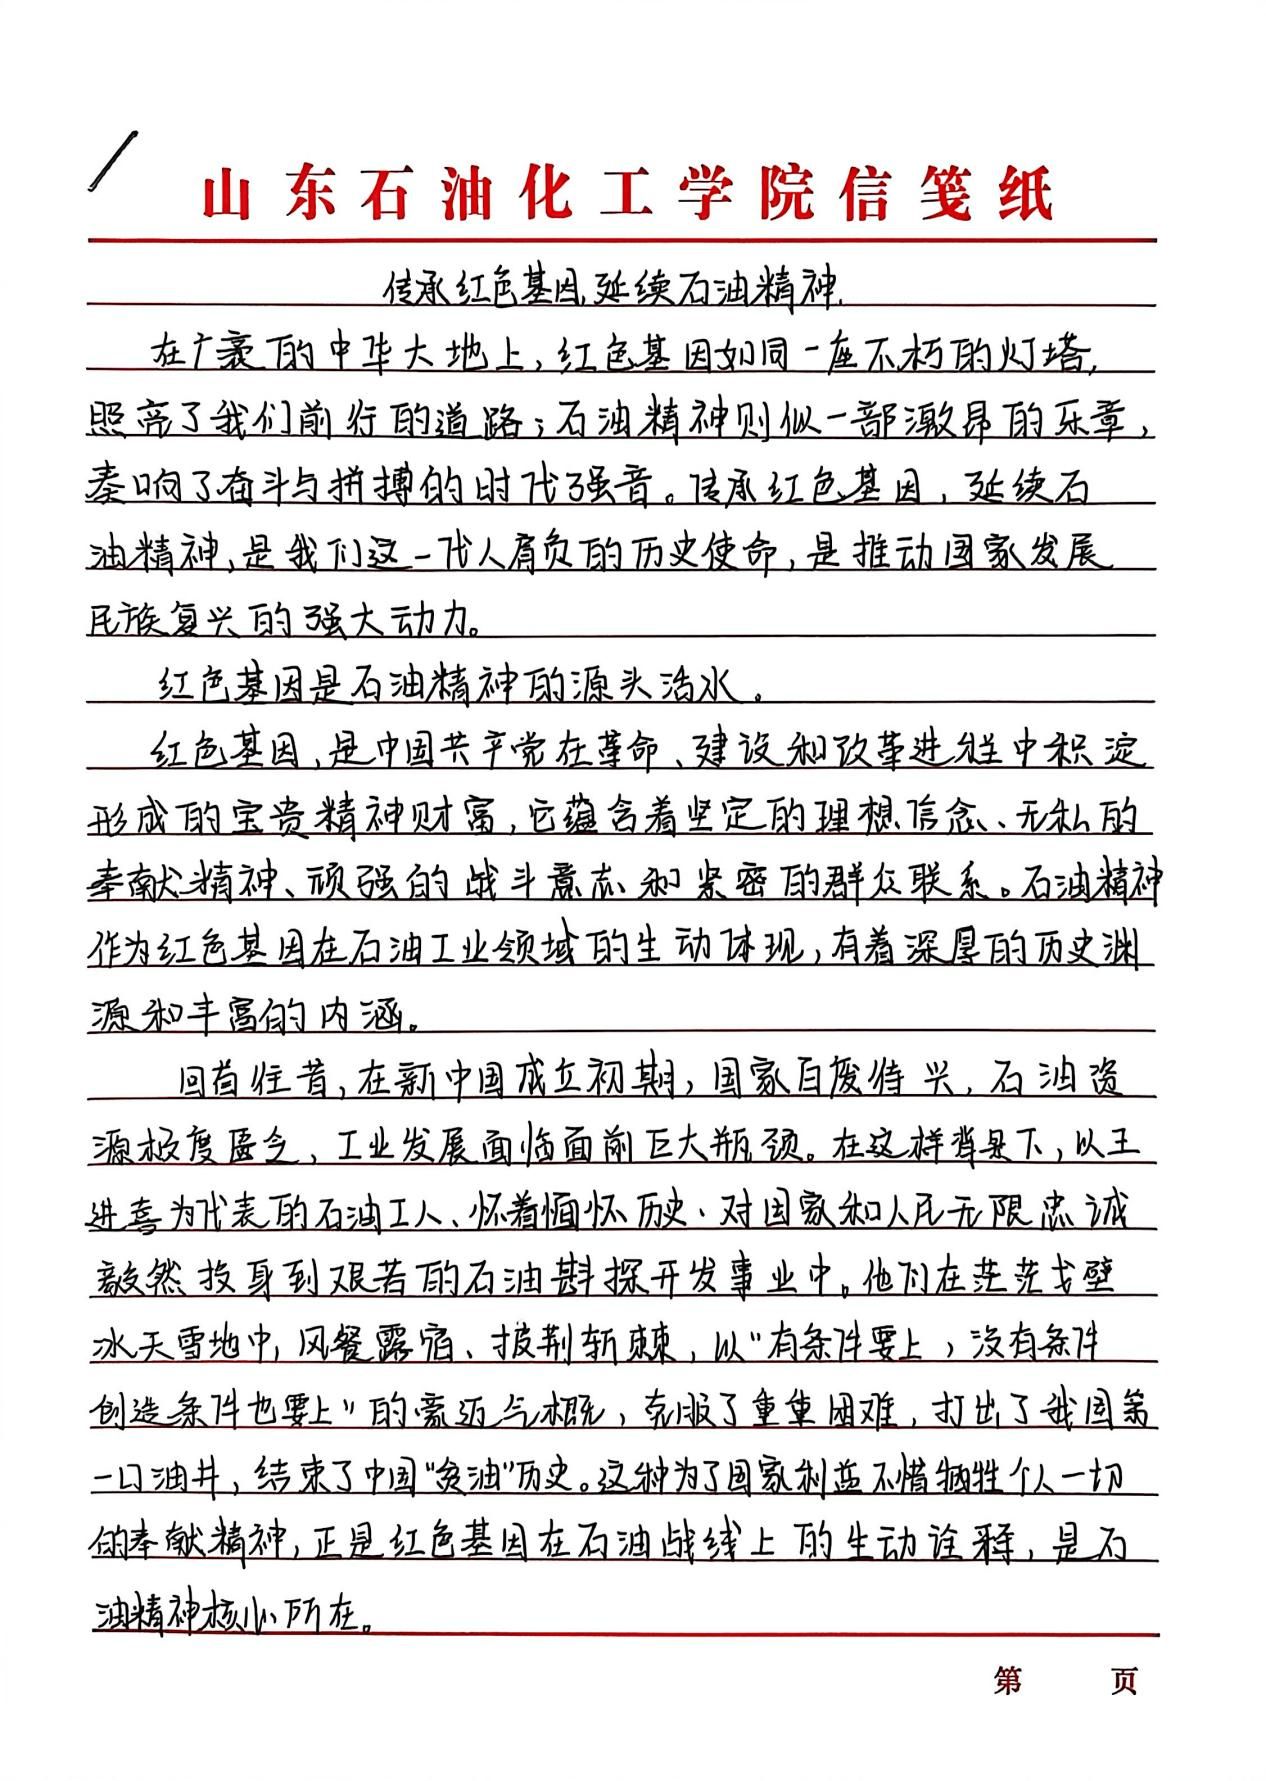 山东石油化工学院信笺纸
传承红色基因,延续石油精神.
在广豪的中华大地上,红色基因如同一座不朽的灯塔,
照亮了我们前行的道路;石油精神则似一部激昂的乐章,
奏响了奋斗与拼搏的时代强音。传承红色基因,延续石
油精神,是我们这一代人肩负的历史使命,是推动国家发展
民族复兴的强大动力。
红色基因是石油精神的源头活水。
红色基因,是中国共产党在革命、建设和改革进程中积淀
形成的宝贵精神财富,它蕴含着坚定的理想信念、无私的
奉献精神、顽强的战斗意志和紧密的群众联系。石油精神
作为红色基因在石油工业领域的生动体现,有着深厚的历史渊
源和丰富的内涵。
回首往昔,在新中国成立初期,国家百废待兴,石油资
源极度匮乏,工业发展面临面前巨大瓶颈。在这样背景下,以王
进喜为代表的石油工人、怀着缅怀历史、对国家和人民无限忠诚
毅然投身到艰苦的石油勘探开发事业中。他们在茫茫戈壁
冰天雪地中,风餐露宿、披荆斩棘,以"有条件要上,没有条件
创造条件也要上"的豪迈气概,克服了重重困难,打出了我国第
一口油井,结束了中国"贫油"历史。这种为了国家利益不惜牺牲个人一切
的奉献精神,正是红色基因在石油战线上的生动诠释,是石
油精神核心所在。
第 页